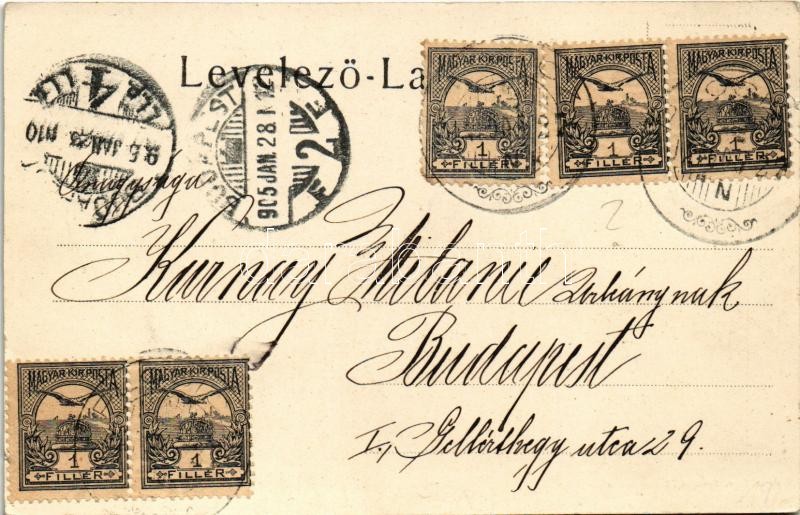 Levelező-La
MAGYAR·KIR·POSTA
1
FILLÉR
MAGYAR·KIR·POSTA
1
FILLÉR
MAGYAR·KIR·POSTA
1
FILLÉR
4
905 JAN. 28
2
Önagysága
Kurnay Melanie Urhánynak
Budapest
I., Gellérthegy utca 29.
MAGYAR·KIR·POSTA
1
FILLÉR
MAGYAR·KIR·POSTA
1
FILLÉR